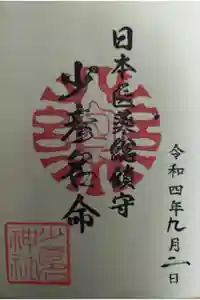 日本医薬総鎮守
少彦名命
令和四年九月二日
神社